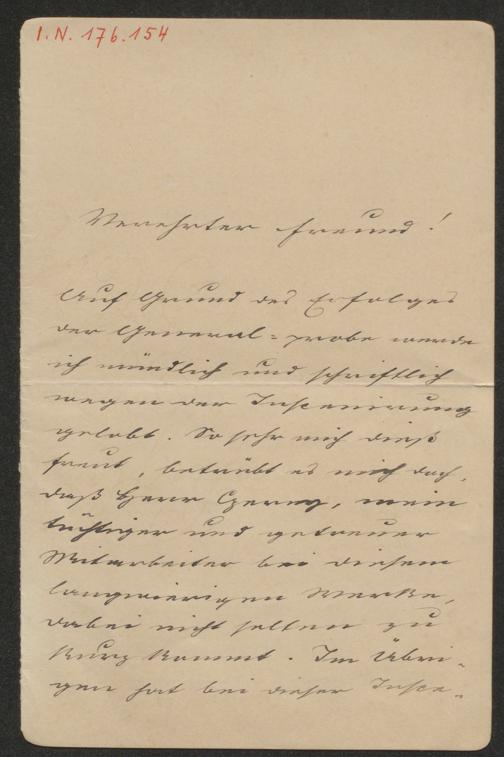 I.N. 176.154
Verehrter Freund!
Auf Grund des Erfolges
der General-probe werde
ich mündlich und schriftlich
wegen der Inscenirung
gelobt. So sehr mich dieß
freut, betrübt es mich doch,
daß Herr Czerny, mein
tüchtiger und getreuer
Mitarbeiter bei diesem
langwierigen Werke,
dabei nicht selten zu
kurz kommt. Im Übri-
gen hat bei dieser Insce-